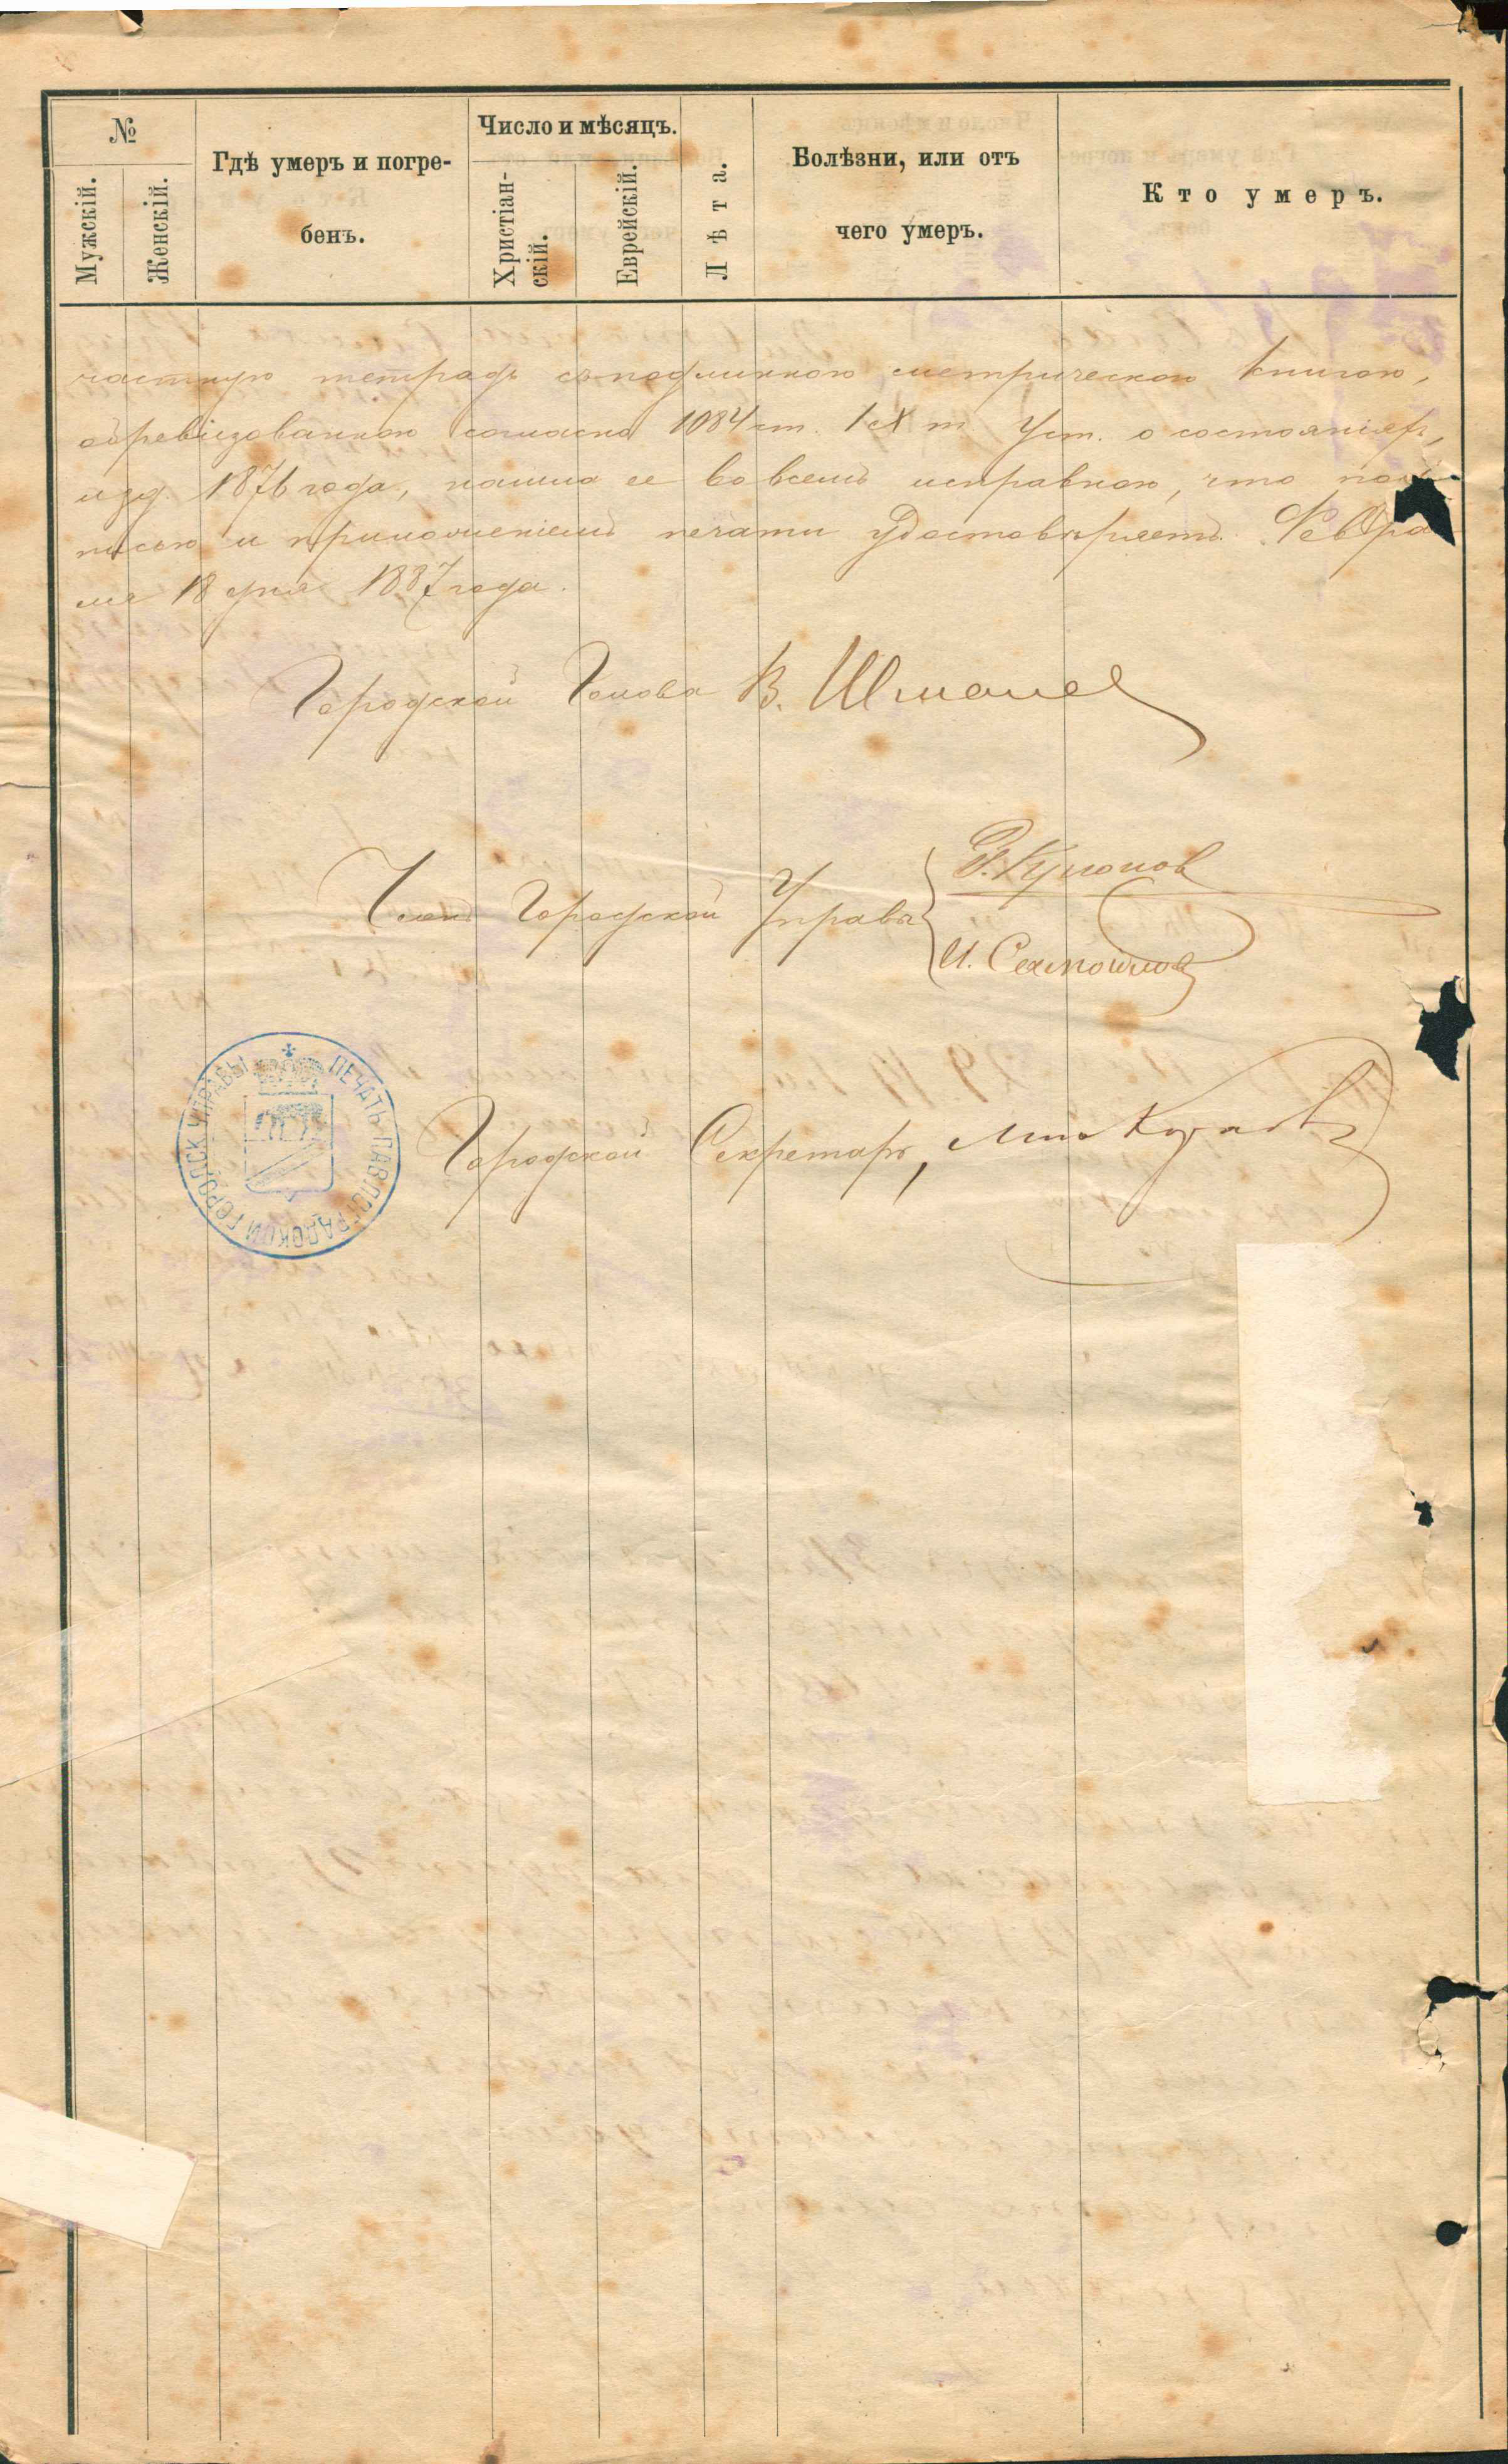 №
Мужскій.
Женскій.
Гдѣ умеръ и погре-
бенъ.
Число и мѣсяцъ.
Христіан-
скій.
Еврейскій.
Лѣта.
Болѣзни, или отъ
чего умеръ.
Кто умеръ.
частную тетрадь съ подлинною метрическою книгою,
обревизованною согласно 1084 ст. IX т. Уст. о состояніяхъ,
изд. 1876 года, нашла ее во всемъ исправною, что
писью и приложеніемъ печати удостовѣряетъ. Февра
ля 18 дня 1887 года.
Городской Голова В.
Члены Городской Управы
И. Самойлов
Городской Секретарь,
ПЕЧАТЬ ПАВЛОГРАДСКОЙ ГОРОДСК УПРАВЫ